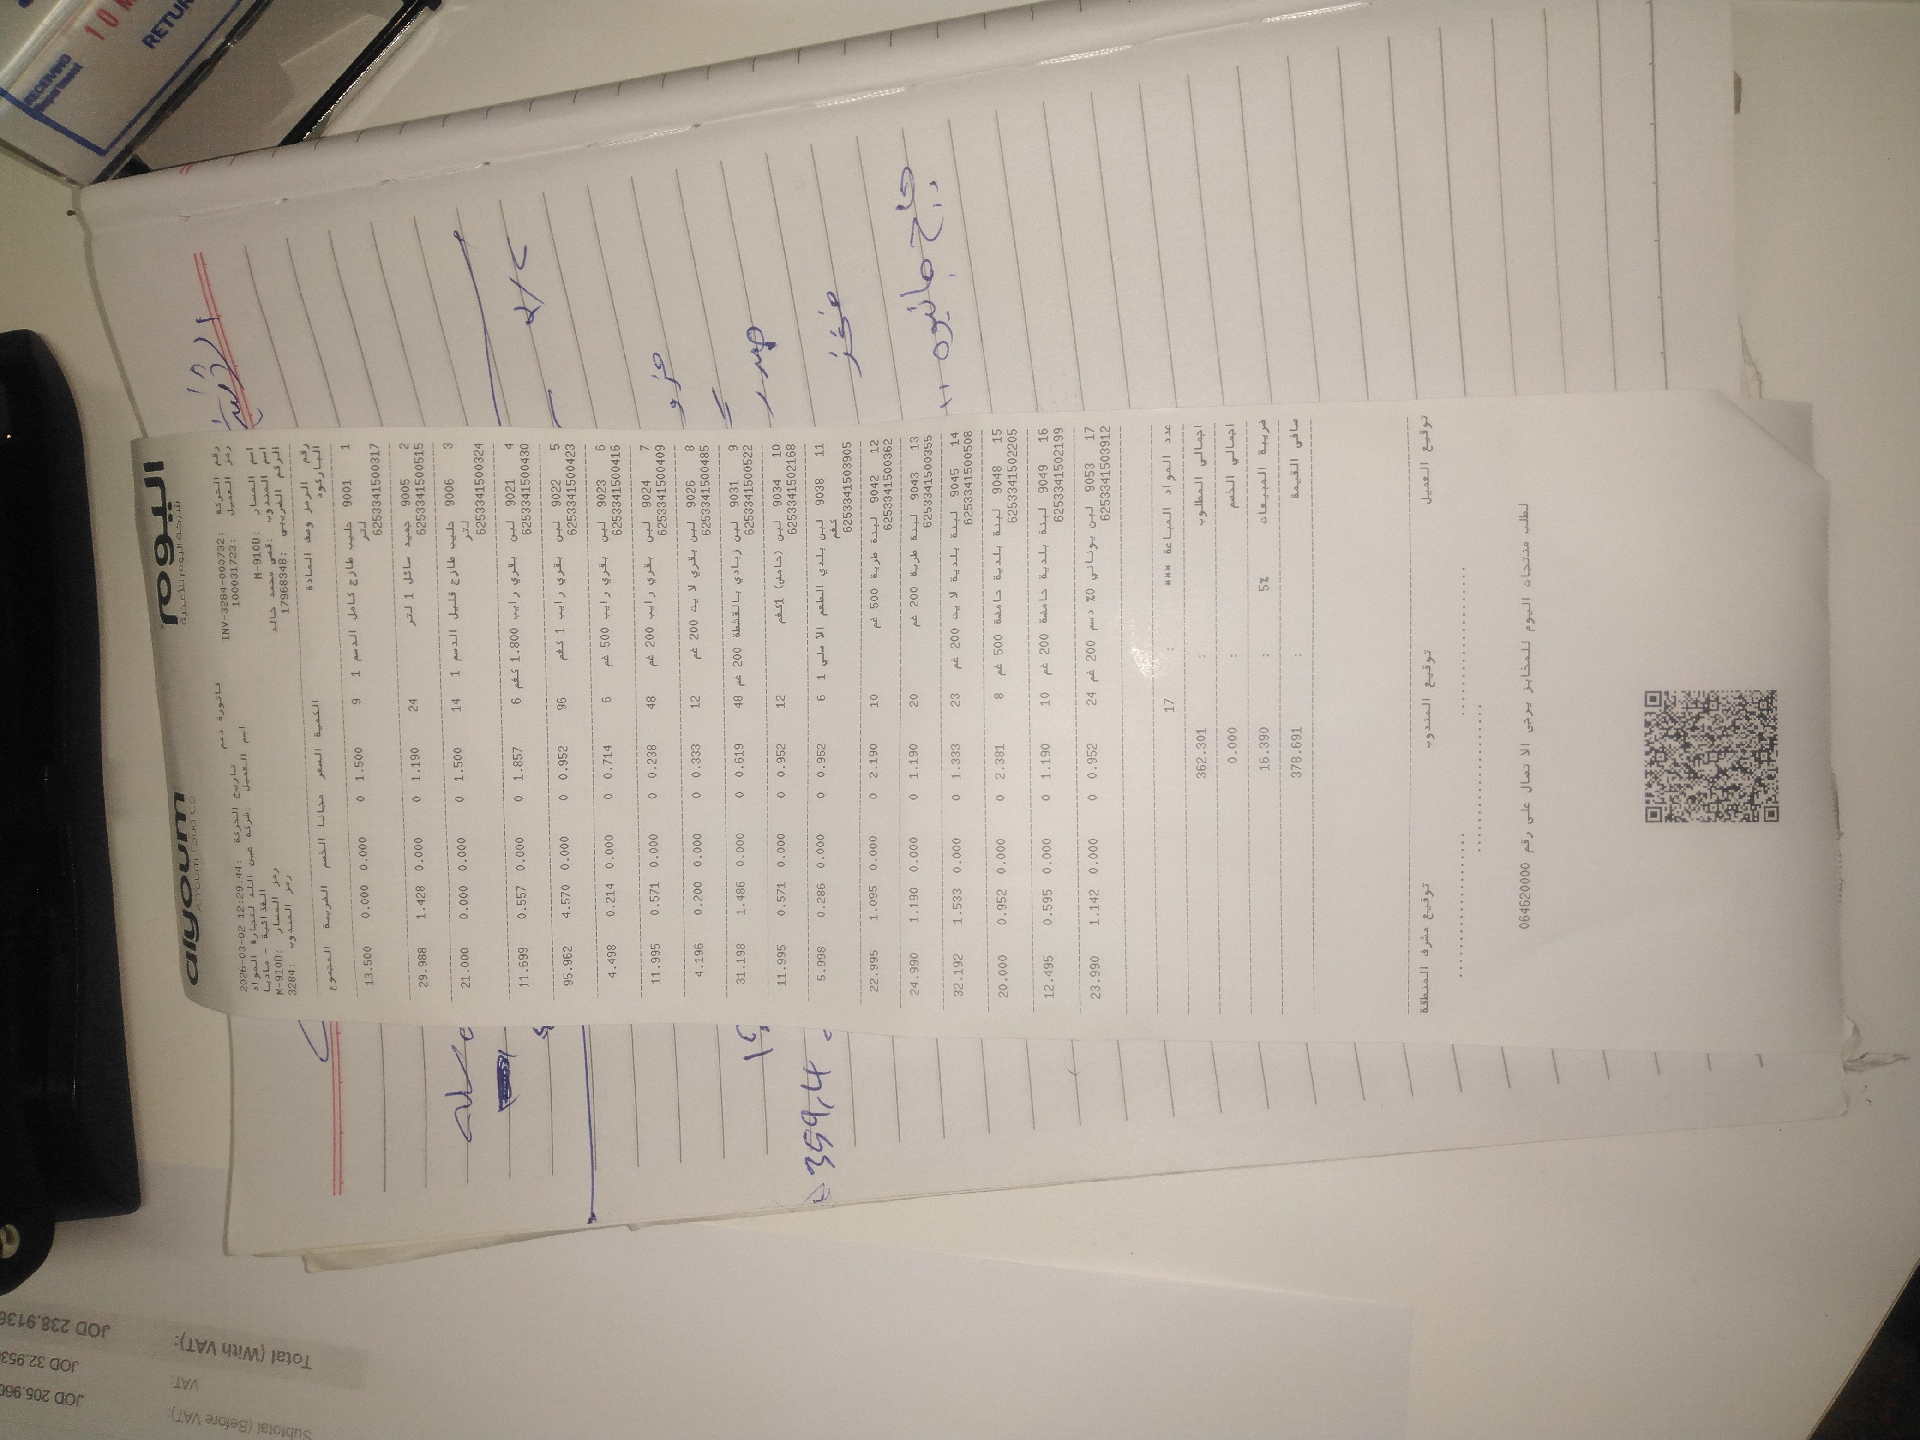 alyoum اليوم
A Youm Food Co
شركة اليوم للأغذية
فاتورة ذمم
رقم الحركة :INV-3284-000732 تاريخ الحركة :2026-03-02 12:29:44
رمز العميل :100031723 اسم العميل :شركة
للتجارة المواد الغذائية - مادبا
اسم المسار :M-910D رمز المسار :M-910D
اسم المندوب :قصي محمد خالد رمز المندوب :3284
الرقم الضريبي :17968348
رقم الرمز وصف المادة الكمية السعر مجانا الخصم الضريبة المجموع
الباركود
1 9001 حليب طازج كامل الدسم 1 لتر 9 1.500 0 0.000 0.000 13.500
6253341500317
2 9005 جميد سائل 1 لتر 24 1.190 0 0.000 1.428 29.988
6253341500515
3 9006 حليب طازج قليل الدسم 1 لتر 14 1.500 0 0.000 0.000 21.000
6253341500324
4 9021 لبن بقري رايب 1.800 كغم 6 1.857 0 0.000 0.557 11.699
6253341500430
5 9022 لبن بقري رايب 1 كغم 96 0.952 0 0.000 4.570 95.962
6253341500423
6 9023 لبن بقري رايب 500 غم 6 0.714 0 0.000 0.214 4.498
6253341500416
7 9024 لبن بقري رايب 200 غم 48 0.238 0 0.000 0.571 11.995
6253341500409
8 9026 لبن بقري لا يت 200 غم 12 0.333 0 0.000 0.200 4.196
6253341500485
9 9031 لبن زبادي بالقشطة 200 غم 48 0.619 0 0.000 1.486 31.198
6253341500522
10 9034 لبن (حامض) 1كغم 12 0.952 0 0.000 0.571 11.995
6253341502168
11 9038 لبن بلدي الطعم الا صلي 1 كغم 6 0.952 0 0.000 0.286 5.998
6253341503905
12 9042 لبنة طرية 500 غم 10 2.190 0 0.000 1.095 22.995
6253341500362
13 9043 لبنة طرية 200 غم 20 1.190 0 0.000 1.190 24.990
6253341500355
14 9045 لبنة بلدية لا يت 200 غم 23 1.333 0 0.000 1.533 32.192
6253341500508
15 9048 لبنة بلدية حامضة 500 غم 8 2.381 0 0.000 0.952 20.000
6253341502205
16 9049 لبنة بلدية حامضة 200 غم 10 1.190 0 0.000 0.595 12.495
6253341502199
17 9053 لبن يوناني 0% دسم 200 غم 24 0.952 0 0.000 1.142 23.990
6253341503912
عدد المواد المباعة *** : 17
اجمالي المطلوب : 362.301
اجمالي الخصم : 0.000
ضريبة المبيعات 5% : 16.390
صافي القيمة : 378.691
توقيع العميل توقيع المندوب توقيع مشرف المنطقة
لطلب منتجات اليوم للمخابز يرجى الا تصال على رقم 064620000
359,4
RECEIVING
10 M
RETUR
Subtotal (Before VAT): JOD 205.960
VAT: JOD 32.953
Total (With VAT): JOD 238.9136